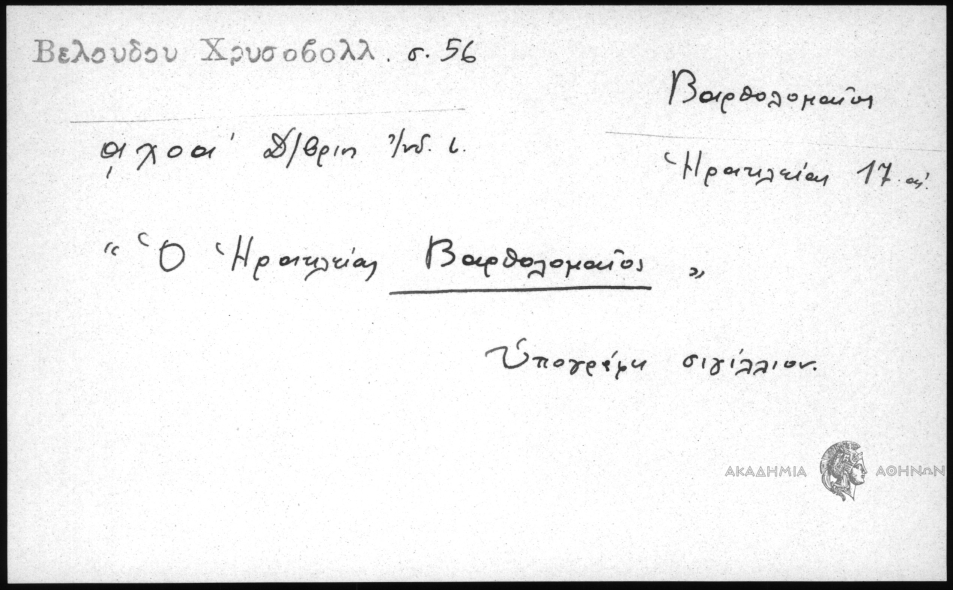 Βελουδου Χρυσοβολλ. σ. 56
Βαρθολομαῖος
͵αχοα' Δ/βριῳ Ἰνδ. ι.
Ἡρακλείας 17 αἰ.
“ Ὁ Ἡρακλείας Βαρθολομαῖος „
Ὑπογράφει σιγίλλιον.
ΑΚΑΔΗΜΙΑ ΑΘΗΝΩΝ